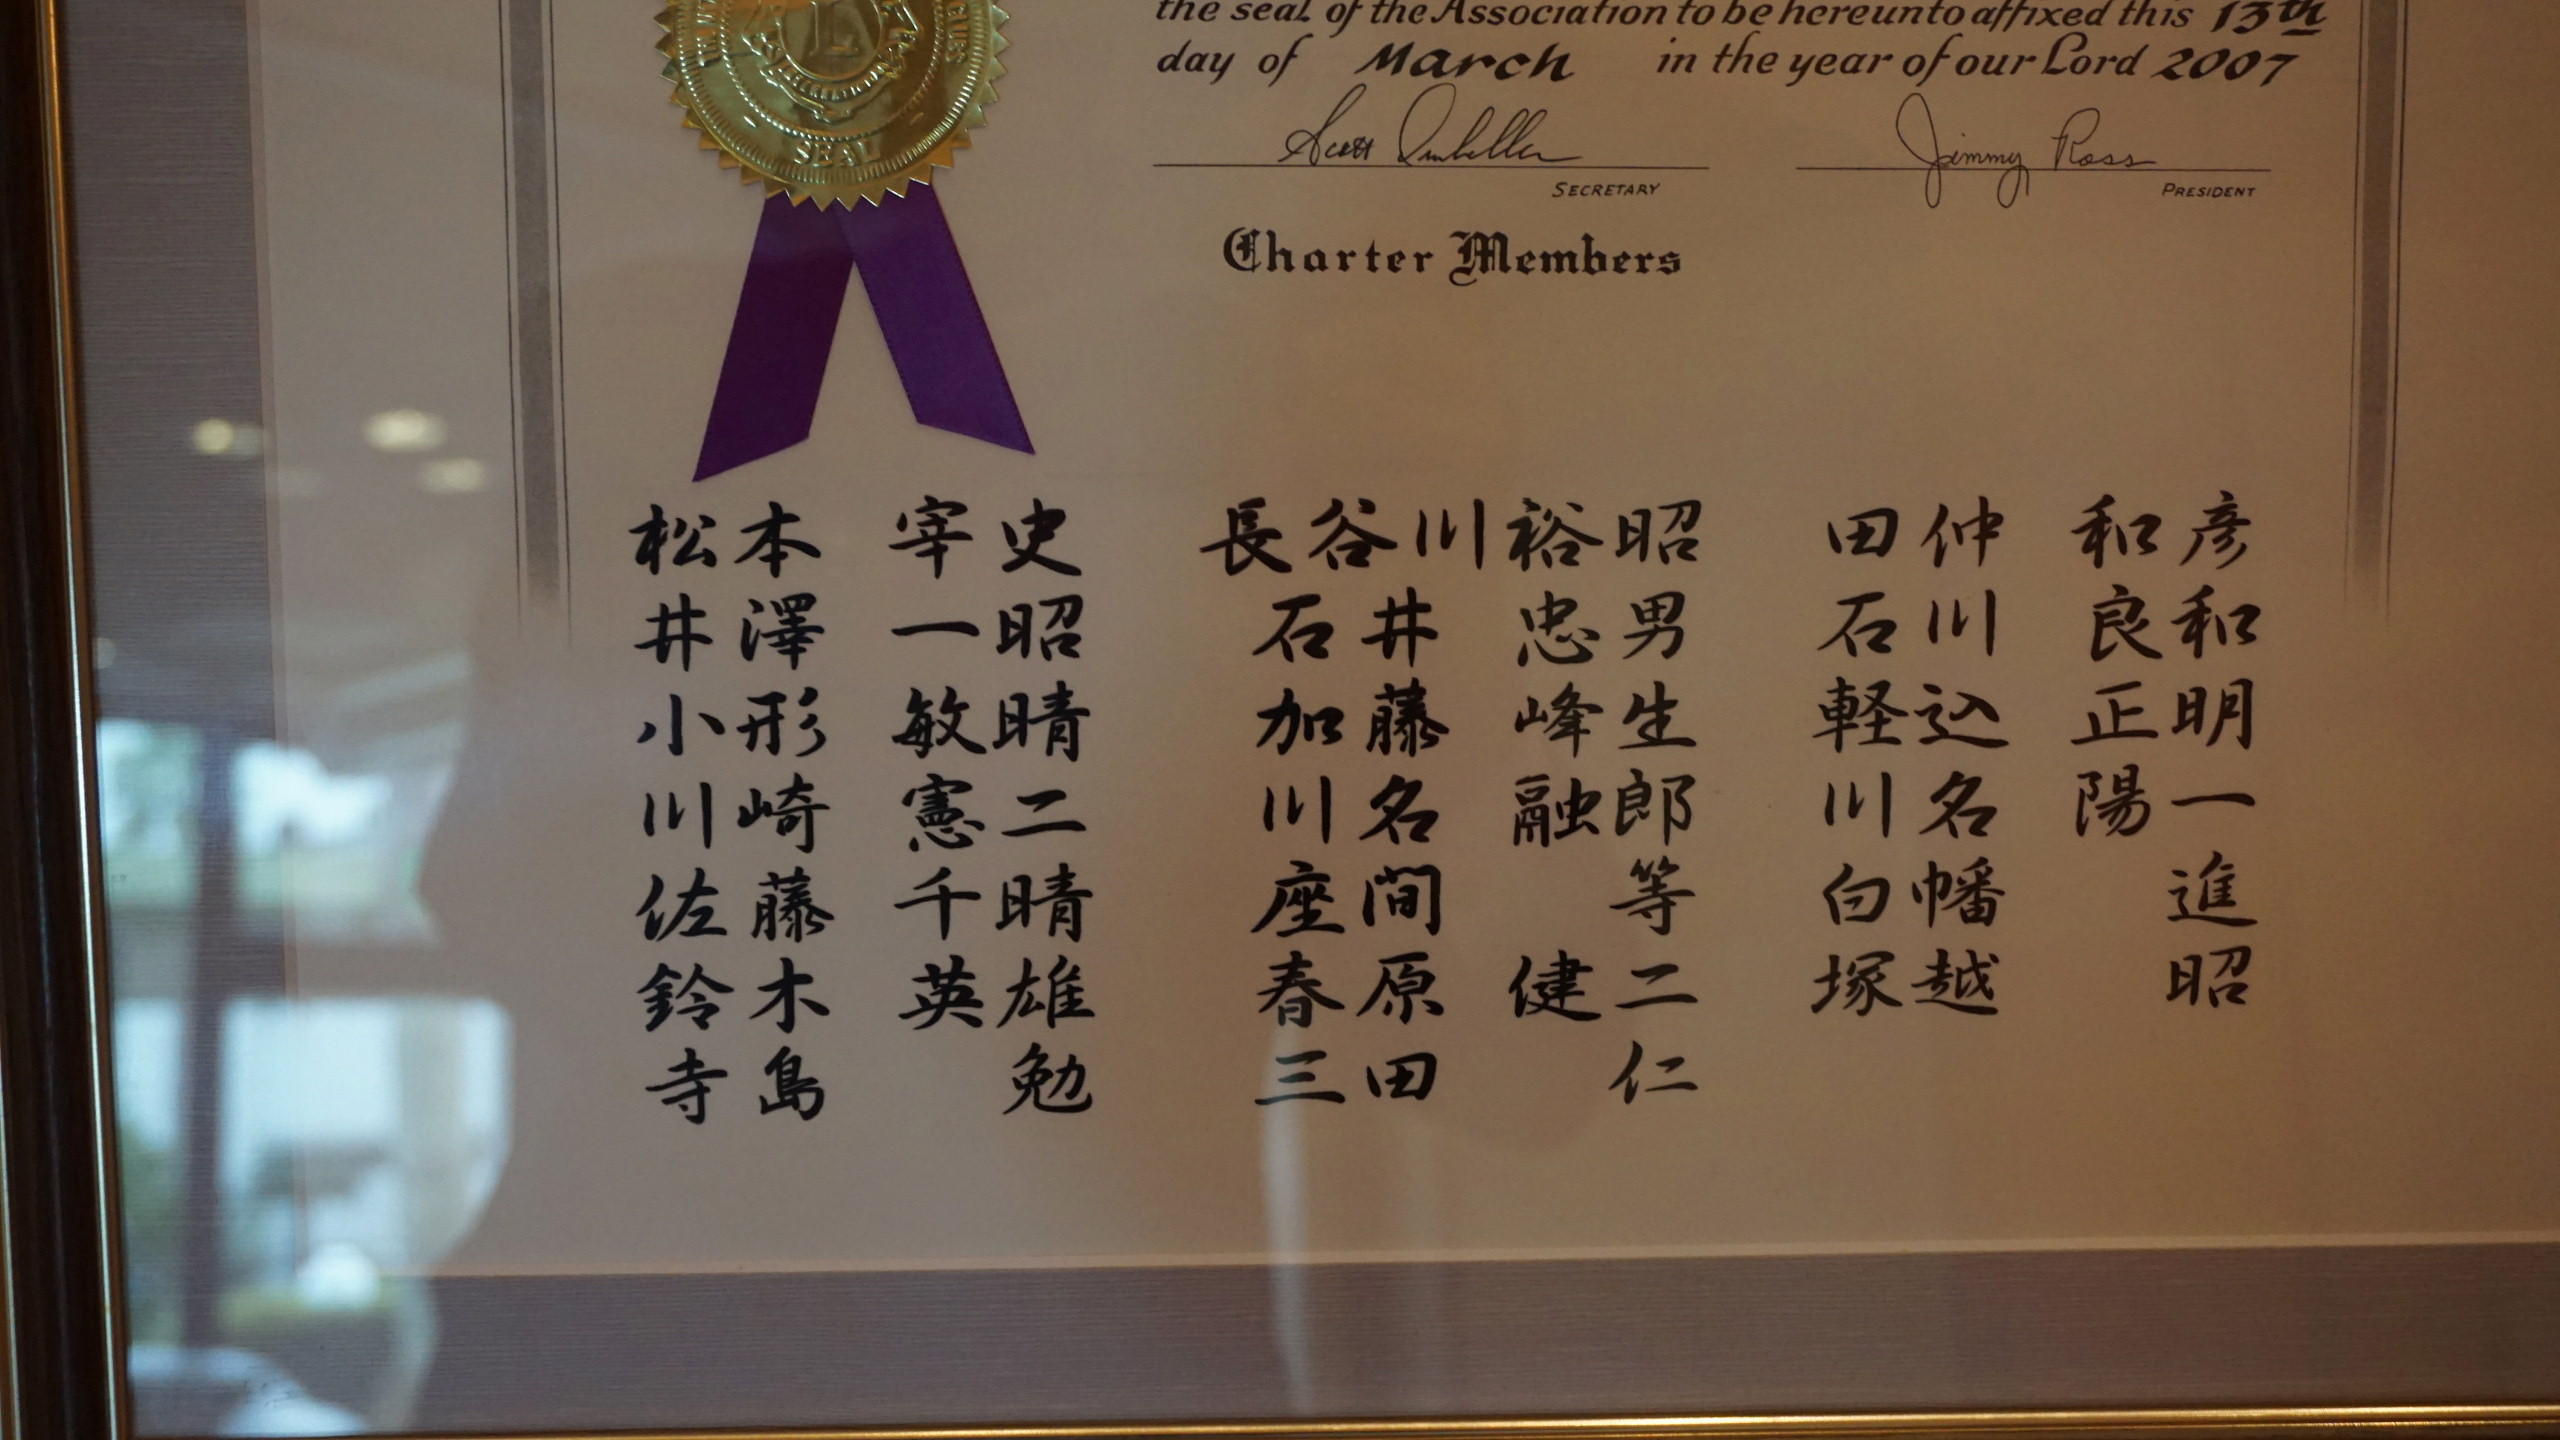 the seal of the Association to be hereunto affixed this 13th
day of March in the year of our Lord 2007
L
SEAL
Scott
Jimmy Ross
SECRETARY
PRESIDENT
Charter Members
松本 宰史 長谷川裕昭 田仲 和彦
井澤 一昭 石井 忠男 石川 良和
小形 敏晴 加藤 峰生 軽込 正明
川崎 憲二 川名 融郎 川名 陽一
佐藤 千晴 座間 等 白幡 進
鈴木 英雄 春原 健二 塚越 昭
寺島 勉 三田 仁